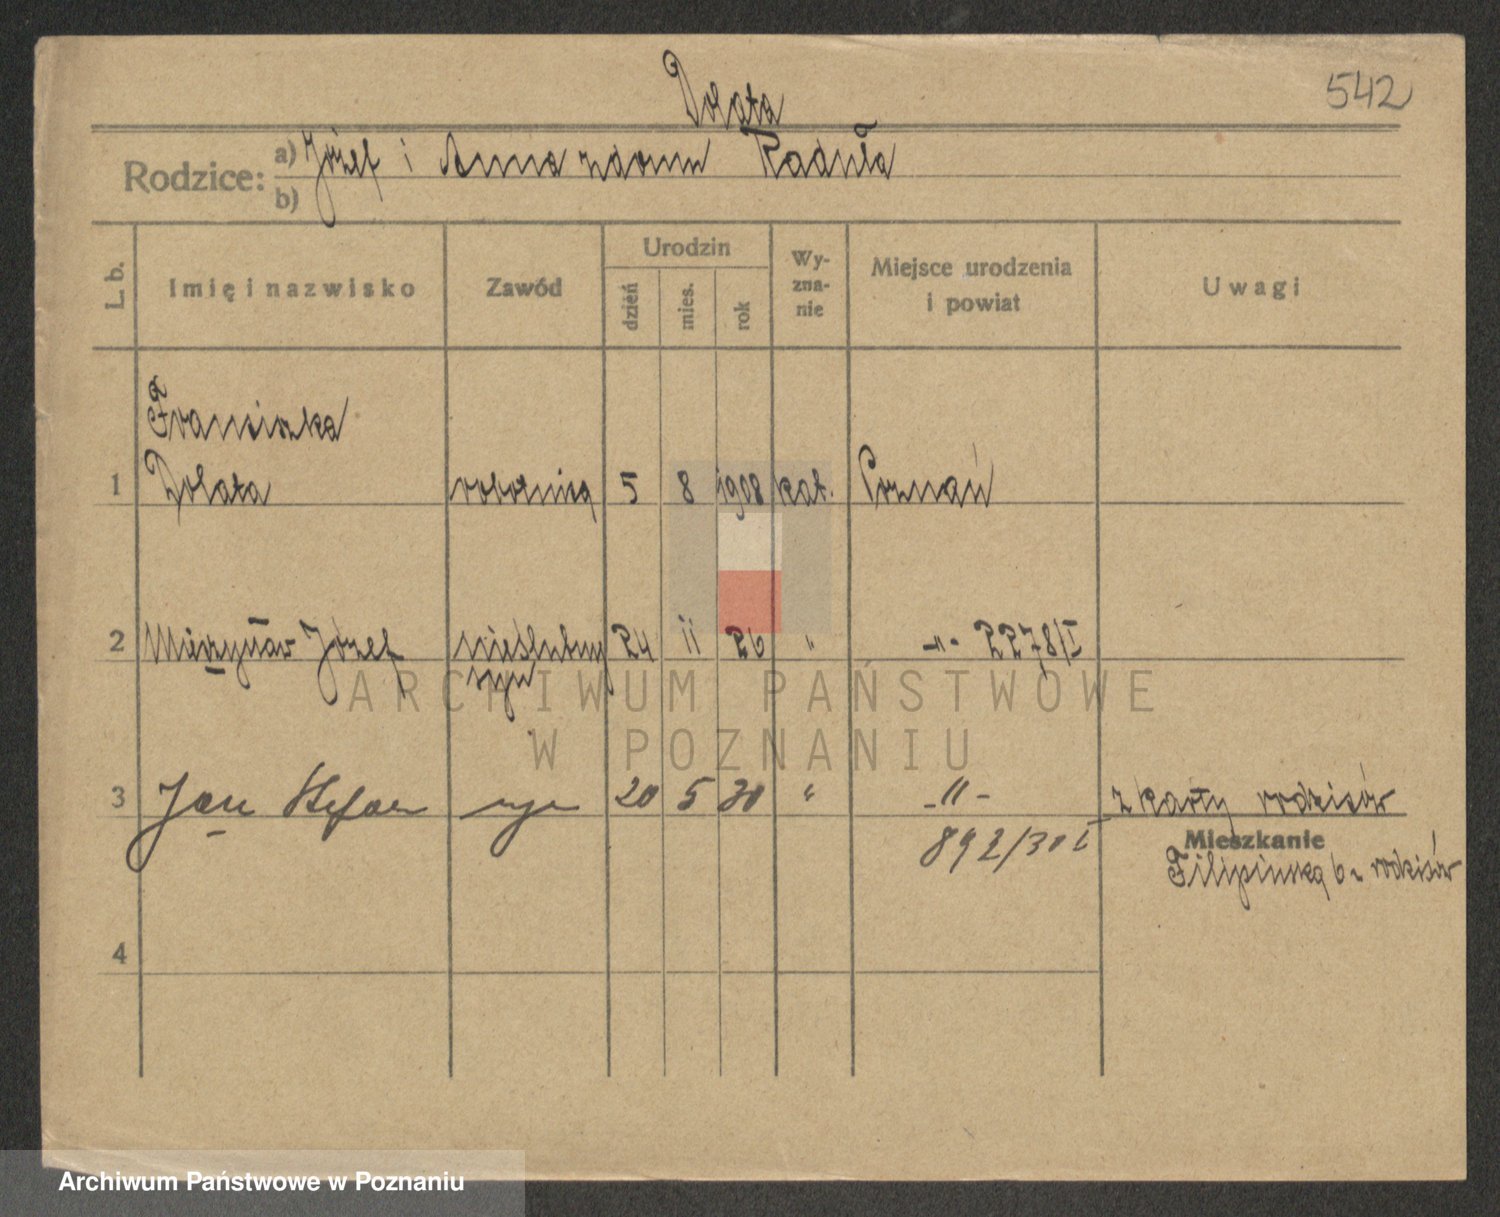 Dolata
542
Rodzice: a) Józef i Anna z domu Raduła
b)
L. b. Imię i nazwisko Zawód Urodzin dzień mies. rok Wyznanie Miejsce urodzenia i powiat Uwagi
Franciszka
1 Dolata robotnica 5 8 1908 kat. Poznań
2 Józef nieślubny 24 11 26 " -"- 2278/I
syn
3 Jan Stefan syn 20 5 30 " -"- z karty rodziców
892/30 I
Mieszkanie
Filipińska 6 u rodziców
4
ARCHIWUM PAŃSTWOWE
W POZNANIU
Archiwum Państwowe w Poznaniu